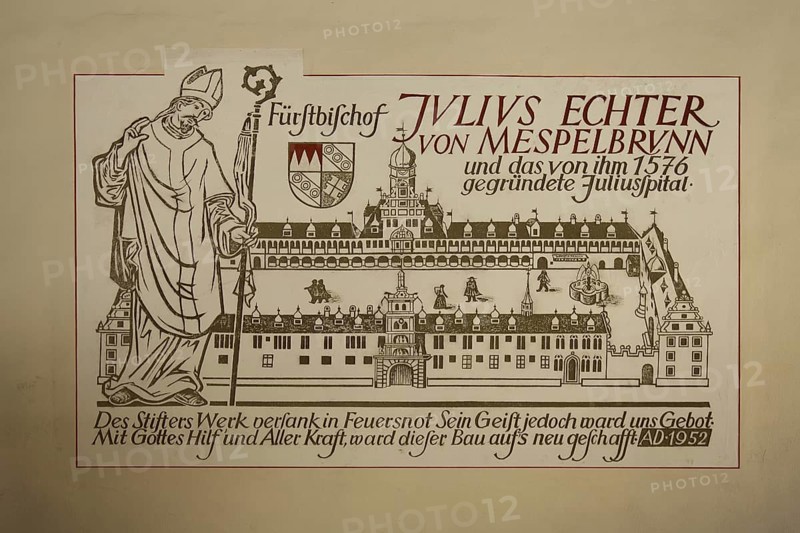 Fürſtbiſchof JVLIVS ECHTER
VON MESPELBRVNN
und das von ihm 1576
gegründete Juliusſpital·
Des Stifters Werk verſank in Feuersnot Sein Geiſt jedoch ward uns Gebot·
Mit Gottes Hilf' und Aller Kraft, ward dieſer Bau aufs neu geſchafft· AD·1952
PHOTO12
PHOTO12
PHOTO12
PHOTO12
PHOTO12
PHOTO12
PHOTO12
PHOTO12
PHOTO12